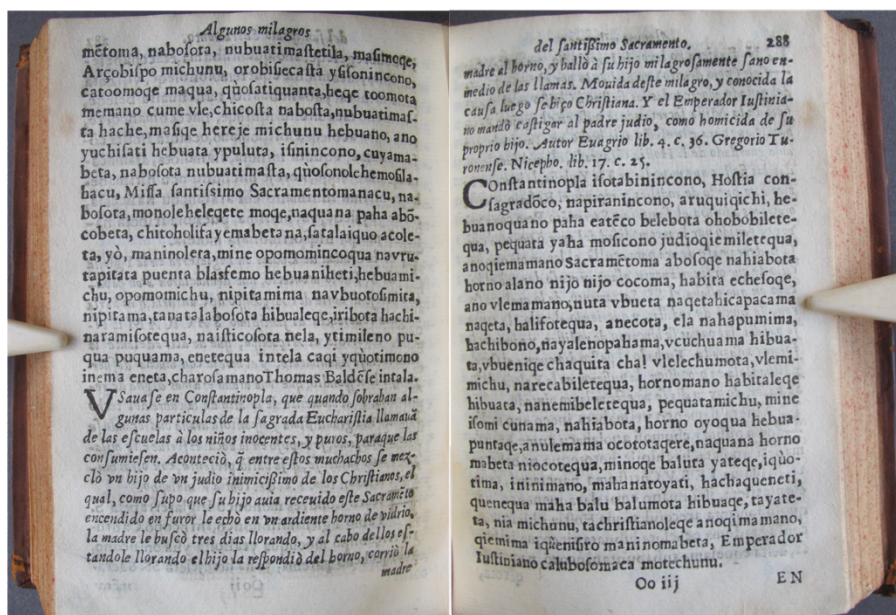 Algunos milagros
mẽtoma, nabosota, nubuatimastetila, masimoqe,
Arçobispo michunu, orobisecasta ysisonincono,
catoomoqe maqua, qùosatiquanta, heqe toomota
memano cume vle, chicosta nabosta, nubuatimas-
ta hache, masiqe hereje michunu hebuano, ano
yuchisati hebuata ypuluta, isinincono, cuyama-
beta, nabosota nubuatimasta, qùosonolehemosila-
hacu, Missa santissimo Sacramentomanacu, na-
bosota, monoleheleqete moqe, naquana paha abõ-
cobeta, chitoholifayemabeta na, satalaiquo acole-
ta, yò, maninolera, mine opomomincoqua navru-
tapitata puenta blasfemo hebuaniheti, hebuami-
chu, opomomichu, nipitamima navbuotosimita,
nipitama, tanatalabosota hibualeqe, iribota hachi-
naramisotequa, naisticosota nela, ytimileno pu-
qua puquama, enetequa intela caqi yqùotimono
inema eneta, charosamano Thomas Baldẽse intala.
VSauase en Constantinopla, que quando sobrauan al-
gunas particulas de la sagrada Eucharistia llamauã
de las escuelas à los niños inocentes, y puros, paraque las
consumiesen. Aconteciò, q̃ entre estos muchachos se mez-
clò vn hijo de vn judio inimicissimo de los Christianos, el
qual, como supo que su hijo auia receuido este Sacramẽto
encendido en furor le echò en vn ardiente horno de vidrio,
la madre le buscò tres dias llorando, y al cabo dellos es-
tandole llorando el hijo la respondiò del horno, corriò la
madre
del santissimo Sacramento. 288
madre al horno, y hallò à su hijo milagrosamente sano en-
medio de las llamas. Mouida deste milagro, y conocida la
causa luego se hiço Christiana. Y el Emperador Iustinia-
no mandò castigar al padre judio, como homicida de su
proprio hijo. Autor Euagrio lib. 4. c. 36. Gregorio Tu-
ronense. Nicepho. lib. 17. c. 25.
COnstantinopla isotabinincono, Hostia con-
sagradõco, napiranincono, aruquiqichi, he-
buanoquano paha eatẽco belebota ohobobilete-
qua, pequata yaha mosicono judioqiemiletequa,
anoqiemamano Sacramẽtoma abosoqe nahiabota
horno alano nijo nijo cocoma, habita echesoqe,
ano vlemamano, nuta vbueta naqetahicapacama
naqeta, halifotequa, anecota, ela nahapumima,
hachibono, ñayalenopahama, vcuchuama hibua-
ta, vbueniqe chaquita cha! vlelechumota, vlemi-
michu, narecabiletequa, hornomano habitaleqe
hibuata, nanemibeletequa, pequatamichu, mine
isomi cunama, nahiabota, horno oyoqua hebua-
puntaqe, anulemama ocototaqere, naquana horno
mabeta niocotequa, minoqe baluta yateqe, iqùo-
tima, ininimano, mahanatoyati, hachaqueneti,
quenequa maha balu balumota hibuaqe, tayate-
ta, nia michunu, tachristianoleqe anoqimamano,
qiemima iqùenisiro maninomabeta, Emperador
Iustiniano calubosomaca motechunu.
Oo iij EN